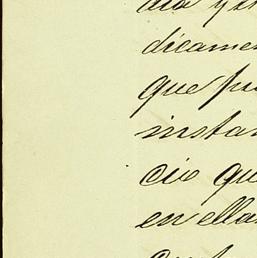 dicamen
que pu
instan
cio qu
en ella